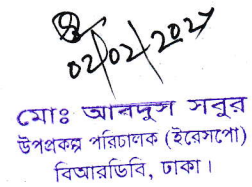 02/02/2027
মোঃ আবদুস সবুর
উপপ্রকল্প পরিচালক (ইরেসপো)
বিআরডিবি, ঢাকা।